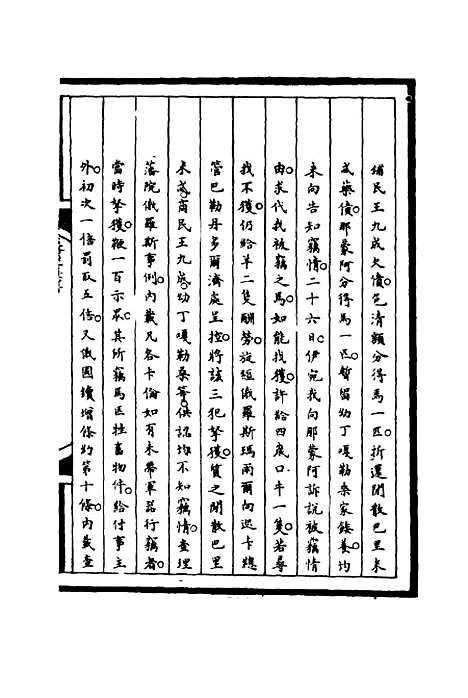 埔民王九成欠債。色清額分得馬一匹。折還閒散巴里米
成藥債。那蒙阿分得馬一匹。暫留幼丁嘎勒桑家餧養。均
未向告知竊情。二十六日。伊宛我向那蒙阿訴說被竊情
由。求代我被竊之馬。如能找獲。許給四底口牛一隻。若尋
找不獲。仍給羊二隻酬勞。旋經俄羅斯瑪雨爾向巡卡總
管巴勒丹多爾濟處呈控。將該三犯拏獲。質之閒散巴里
米成。商民王九成。幼丁嘎勒桑等。供認均不知竊情。查理
藩院俄羅斯事例。內載凡各卡倫如有未帶軍器行竊者。
當時拏獲。鞭一百示眾。其所竊馬匹牲畜物件。給付事主
外。初次一倍罰取五倍。又俄國續增條約第十條。內載查